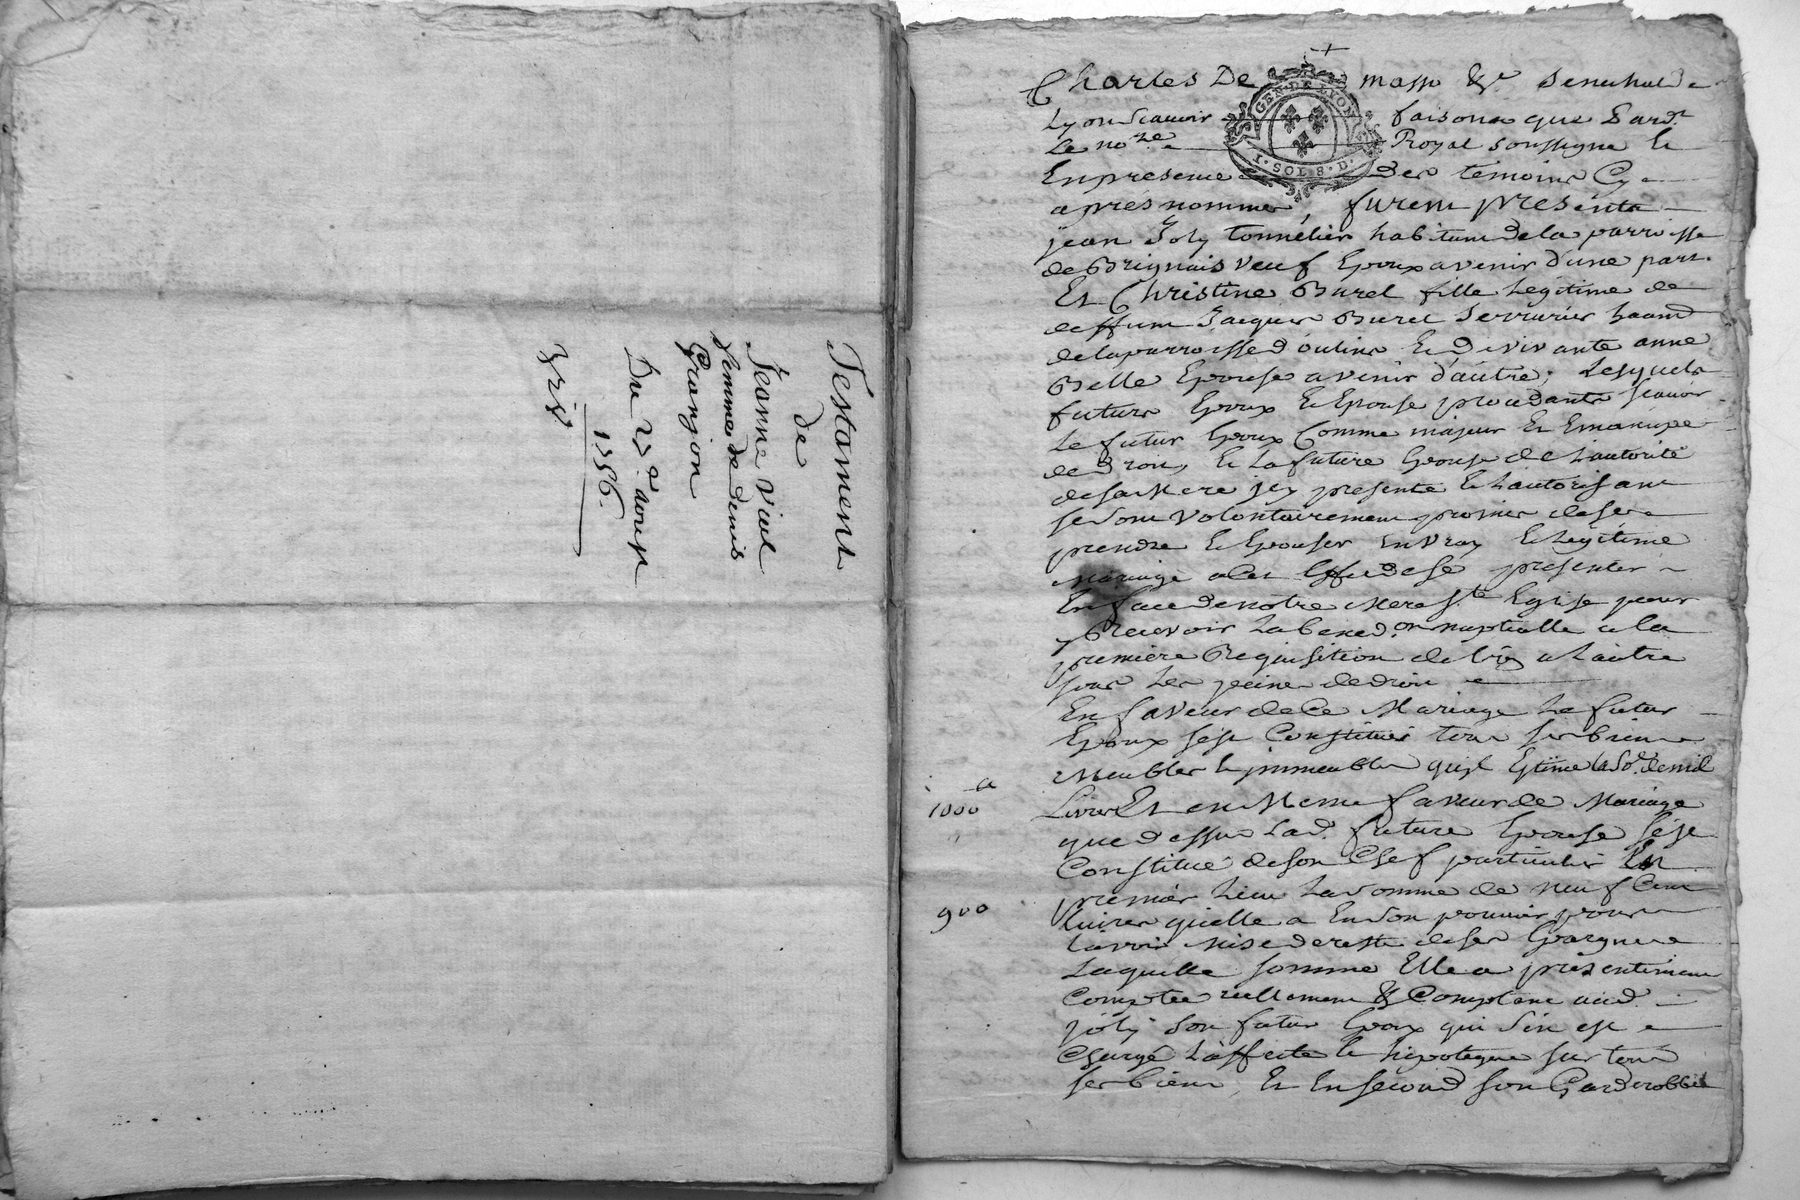 Testament
de
Jeanne Vial
femme de Denis
Granjon
Du 22e aoust
1756.
GEN·DE LYON
1·SOL 8·D·
Charles De masso &r. Senechal de
Lyon scavoir faisons que pardt
Le nore Royal soussigne &
En presence des temoins Cy
apres nommes, furent presents
jean Joly tonnelier habitant de la parroisse
de Brignais veuf Epoux avenir d'une part.
Et Christine Burel fille Legitime de
deffunt Jacques Burel serrurier
de la parroisse d'oulins & de vivante anne
Belle Epouse avenir d'autre; Lesquels
futurs Epoux & Epouse procedants scavoir
Le futur Epoux Comme majeur Et Emancipé
de droit, & La future Epouse de L'autorité
de sa Mere jcy presente & L'autorisant
se sont volontairement promis de se
prendre & Epouser en vray & Legitime
Mariage a cet Effet de se presenter
En face de notre Mere Ste Eglise pour
y Recevoir La bened.on nuptialle a la
premiere Requisition de l'un a L'autre
sous Les peines de droit
En faveur de Ce Mariage Le futur
Epoux s'est Constitué tous ses biens
Meubles & jmmeubles qu'jl Estime la so.e de mil
1000
Livres Et en Meme faveur de Mariage
que dessus Lad. future Epouse s'est
Constitué de son Chef particulier En
premier Lieu La somme de neuf Cent
900
Livres qu'elle a En son pouvoir pour
L'avoir mise de reste de ses Epargnes
Laquelle somme Elle a presentement
Comptée reellement & Comptant aud.
joly son futur Epoux qui s'en est
Chargé L'affecte & hipoteque sur tous
ses biens, Et En second son Garderobbe